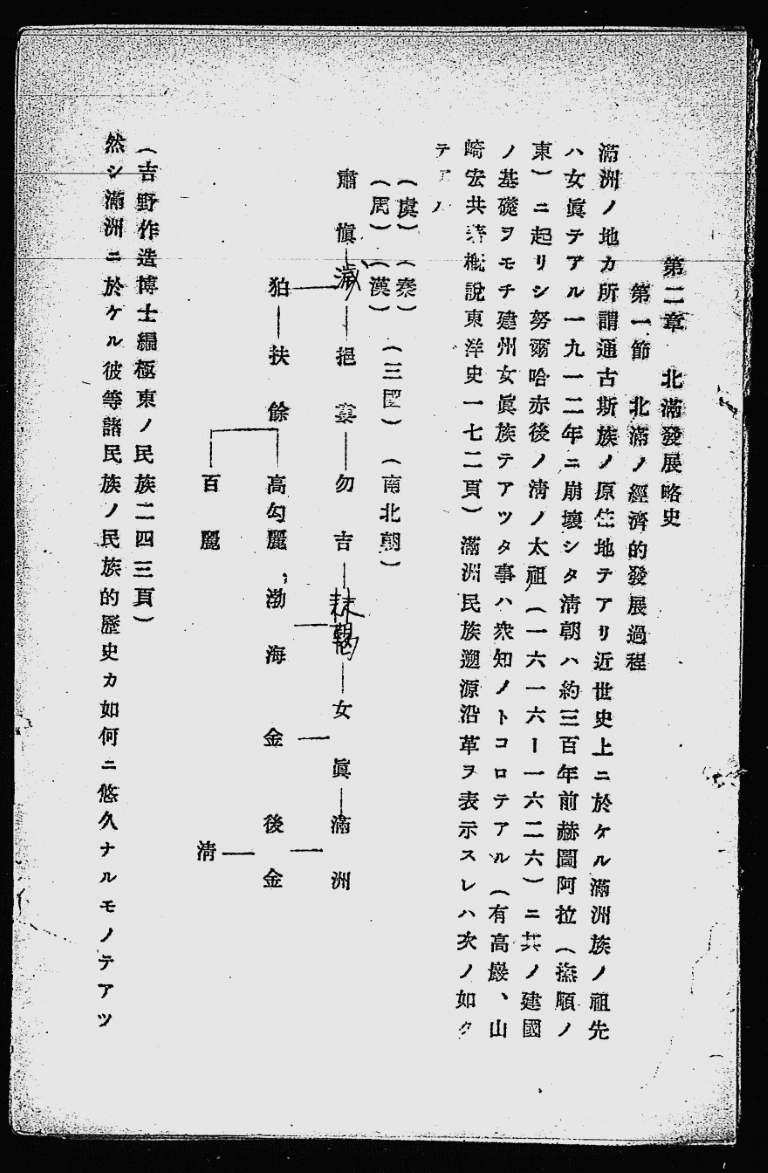 第二章　北滿發展略史
第一節　北滿ノ經濟的發展過程
滿洲ノ地カ所謂通古斯族ノ原住地テアリ近世史上ニ於ケル滿洲族ノ祖先
ハ女眞テアル一九一二年ニ崩壞シタ清朝ハ約三百年前赫圖阿拉（撫順ノ
東）ニ起リシ努爾哈赤後ノ清ノ太祖（一六一六ー一六二六）ニ其ノ建國
ノ基礎ヲモチ建州女眞族テアツタ事ハ衆知ノトコロテアル（有高巖、山
崎宏共著概說東洋史一七二頁）滿洲民族遡源沿革ヲ表示スレハ次ノ如ク
テアル
（虞）（秦）
（周）（漢）　（三國）　（南北朝）
肅愼―濊―挹婁―勿吉―靺鞨―女眞―滿洲
狛―扶餘　高勾麗、渤海　金　後金
百麗　清
（吉野作造博士編極東ノ民族二四三頁）
然シ滿洲ニ於ケル彼等諸民族ノ民族的歷史カ如何ニ悠久ナルモノテアツ